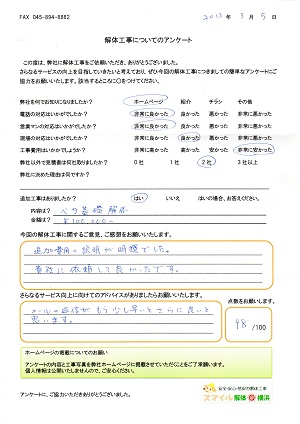 FAX 045-894-8882
2013 年 3 月 5 日
解体工事についてのアンケート
この度は、弊社に解体工事をご依頼いただき、ありがとうございました。
さらなるサービスの向上を目指していきたいと考えており、ぜひ今回の解体工事につきましての簡単なアンケートにご
協力をお願いします。該当するところに○をつけてください。
弊社を何でお知りになりましたか? ホームページ 紹介 チラシ その他
電話の対応はいかがでしたか? 非常に良かった 良かった 悪かった 非常に悪かった
営業マンの対応はいかがでしたか? 非常に良かった 良かった 悪かった 非常に悪かった
現場の対応はいかがでしたか? 非常に良かった 良かった 悪かった 非常に悪かった
工事費用はいかがでしょうか? 非常に高かった 高かった 安かった 非常に安かった
弊社以外で見積書は何社取りましたか? 0社 1社 2社 3社以上
弊社に決めた理由は何ですか?
追加工事はありましたか? はい いいえ はいの場合、お答えください。
内容は? ベタ基礎解体
金額は? ¥100,000-
今回の解体工事に関するご意見、ご感想をお願いいたします。
追加費用の説明が明瞭でした。
貴社に依頼して良かったです。
さらなるサービス向上に向けてのアドバイスがありましたらお願いいたします。
点数をお願いします。
メールの返信がもう少し早いとさらに良いと
思います。
98 /100
ホームページの掲載についてのお願い
アンケートの内容と工事写真を弊社ホームページに掲載させていただくことをご了承願います。
個人情報は公開いたしませんので、ご安心ください。
安全・安心・感動の解体工事
アンケートに、ご協力いただきありがとうございました。
スマイル解体 横浜